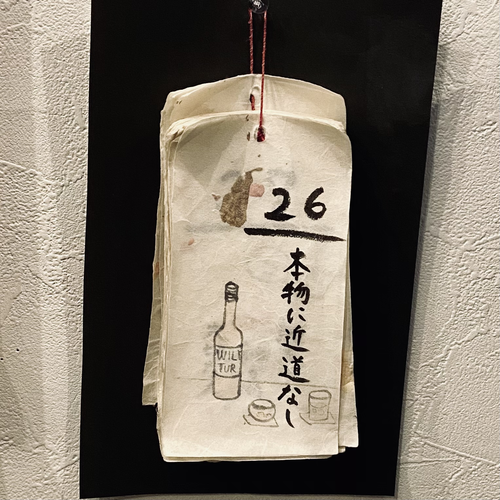 26
本物に近道なし
WIL
TUR